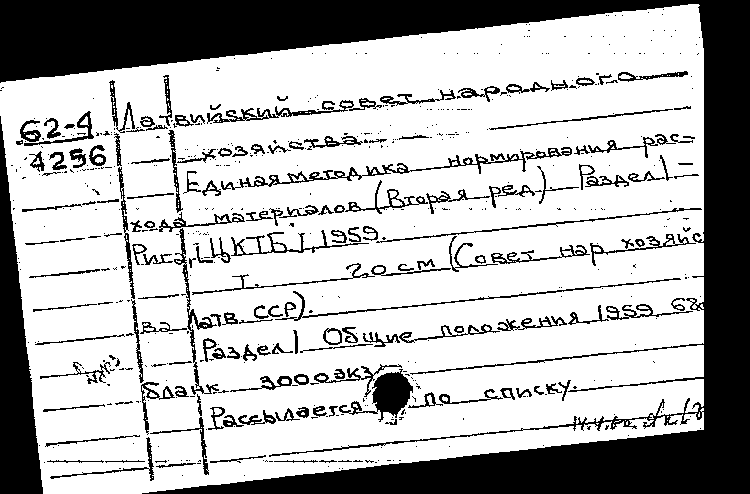 62-4
4256
Латвийский совет народного
хозяйства.
Единая методика нормирования рас-
хода материалов (Вторая ред). Раздел I –
Рига, ЦКТБ I, 1959.
т. 20 см (Совет нар хозяйс
ва Латв. ССР).
Раздел I Общие положения. 1959. 68
бланк. 3000 экз
Рассылается по списку.